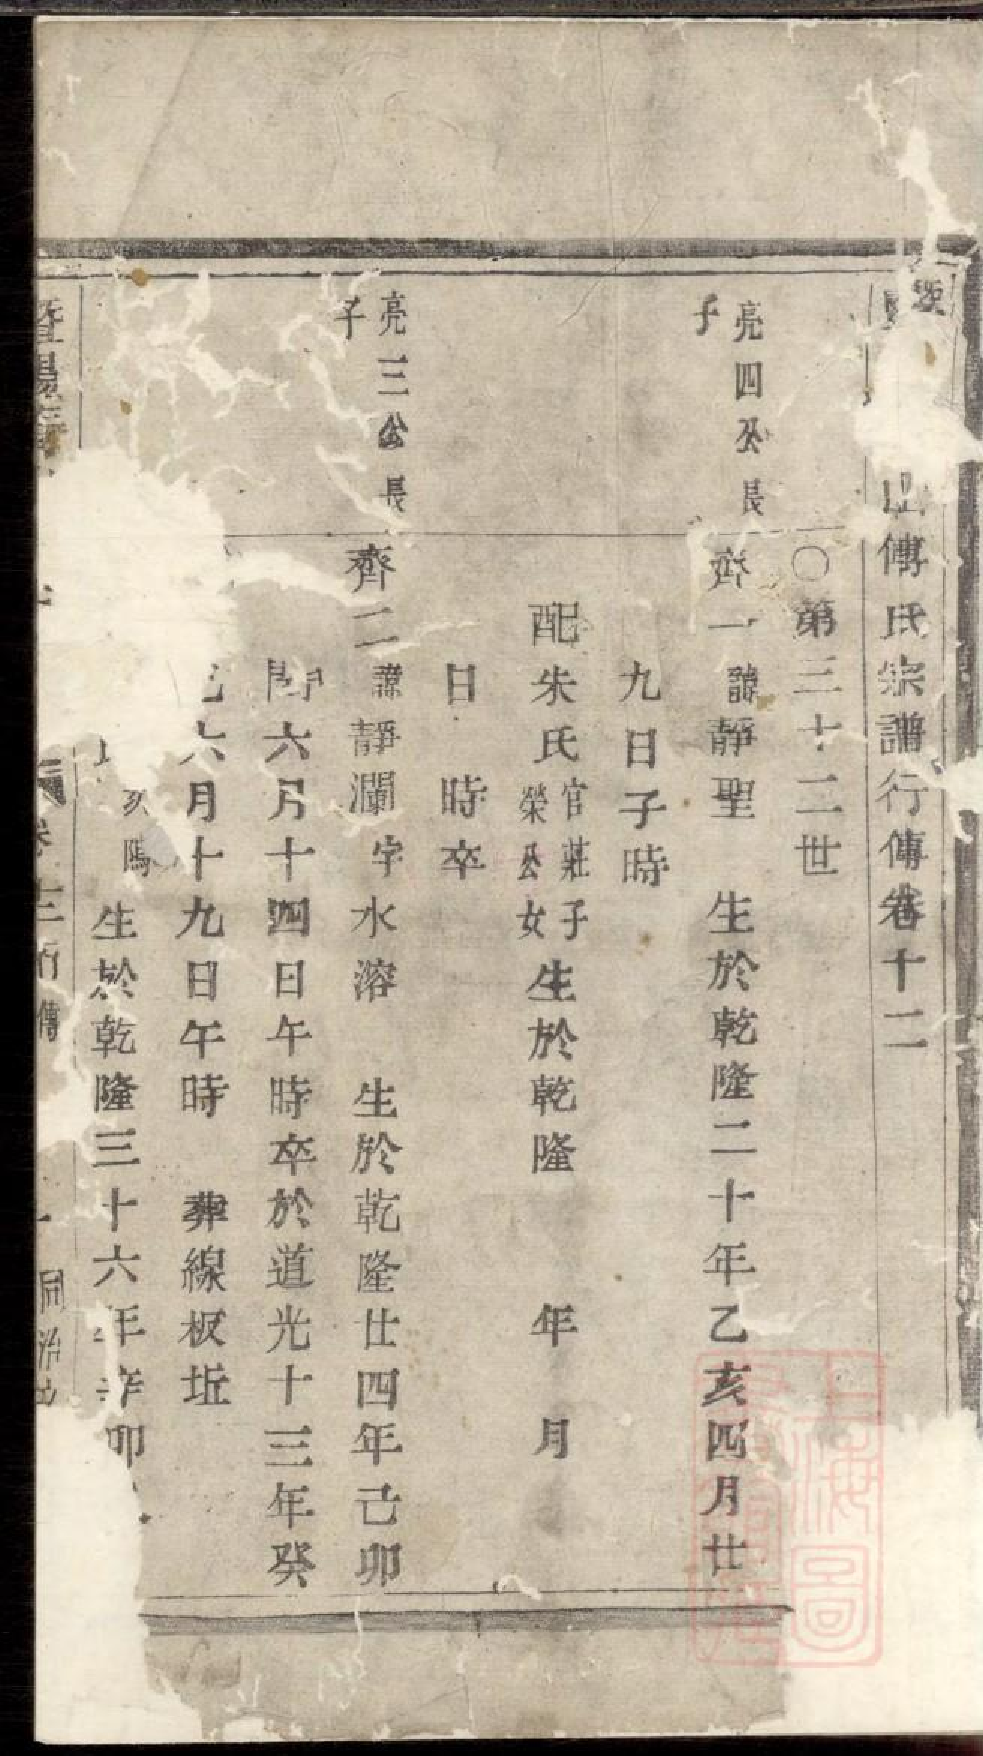 山傅氏宗譜行傳卷十二
〇第三十二世
亮四公長
子
齊一諱靜聖 生於乾隆二十年乙亥四月廿
九日子時
配朱氏官莊子榮公女生於乾隆 年 月
日 時卒
亮三公長
子
齊二諱靜瀾字水溶 生於乾隆廿四年己卯
閏六月十四日午時卒於道光十三年癸
六月十九日午時 葬線板坵
生於乾隆三十六年辛卯
暨陽
卷十二行傳
一
同治
上海圖